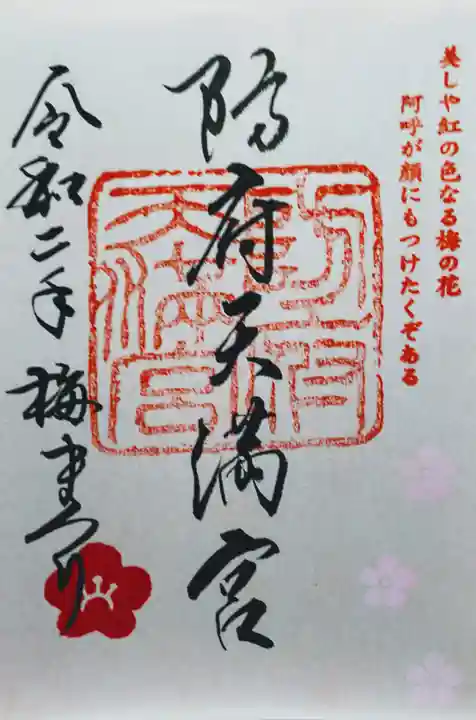 美しや紅の色なる梅の花
阿呼が顔にもつけたくぞある
防府天満宮
令和二年 梅まつり